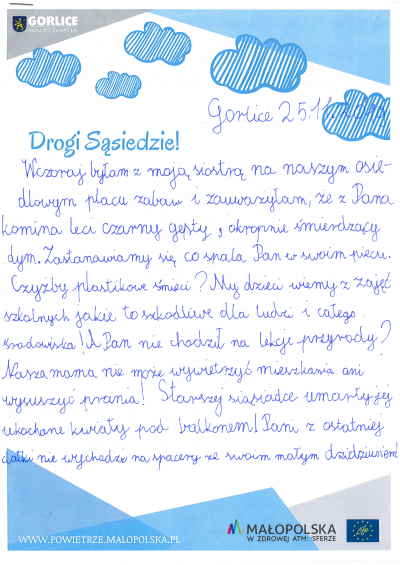 GORLICE
MIASTO ŚWIATŁA
Gorlice 25.11.
Drogi Sąsiedzie!
Wczoraj byłam z moją siostrą na naszym osie-
dlowym placu zabaw i zauważyłam, że z Pana
komina leci czarny gęsty, okropnie śmierdzący
dym. Zastanawiamy się, co spala Pan w swoim piecu.
Czyżby plastikowe śmieci? My dzieci wiemy z zajęć
szkolnych jakie to szkodliwe dla ludzi i całego
środowiska! A Pan nie chodził na lekcje przyrody?
Nasza mama nie może wywietrzyć mieszkania ani
wysuszyć prania! Starszej siąsiadce umarły jej
ukochane kwiaty pod balkonem! Pani z ostatniej
klatki nie wychodzi na spacery ze swoim małym dzidziusiem!
WWW.POWIETRZE.MALOPOLSKA.PL
MAŁOPOLSKA
W ZDROWEJ ATMOSFERZE
life